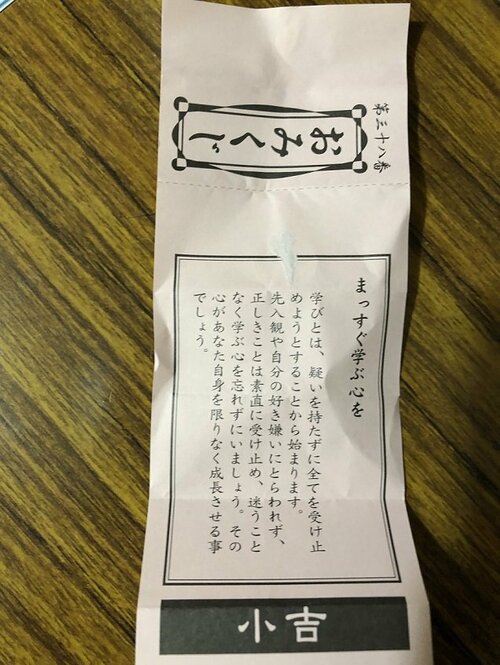 第三十八番
おみくじ
まっすぐ学ぶ心を
学びとは、疑いを持たずに全てを受け止
めようとすることから始まります。
先入観や自分の好き嫌いにとらわれず、
正しきことは素直に受け止め、迷うこと
なく学ぶ心を忘れずにいましょう。その
心があなた自身を限りなく成長させる事
でしょう。
小吉